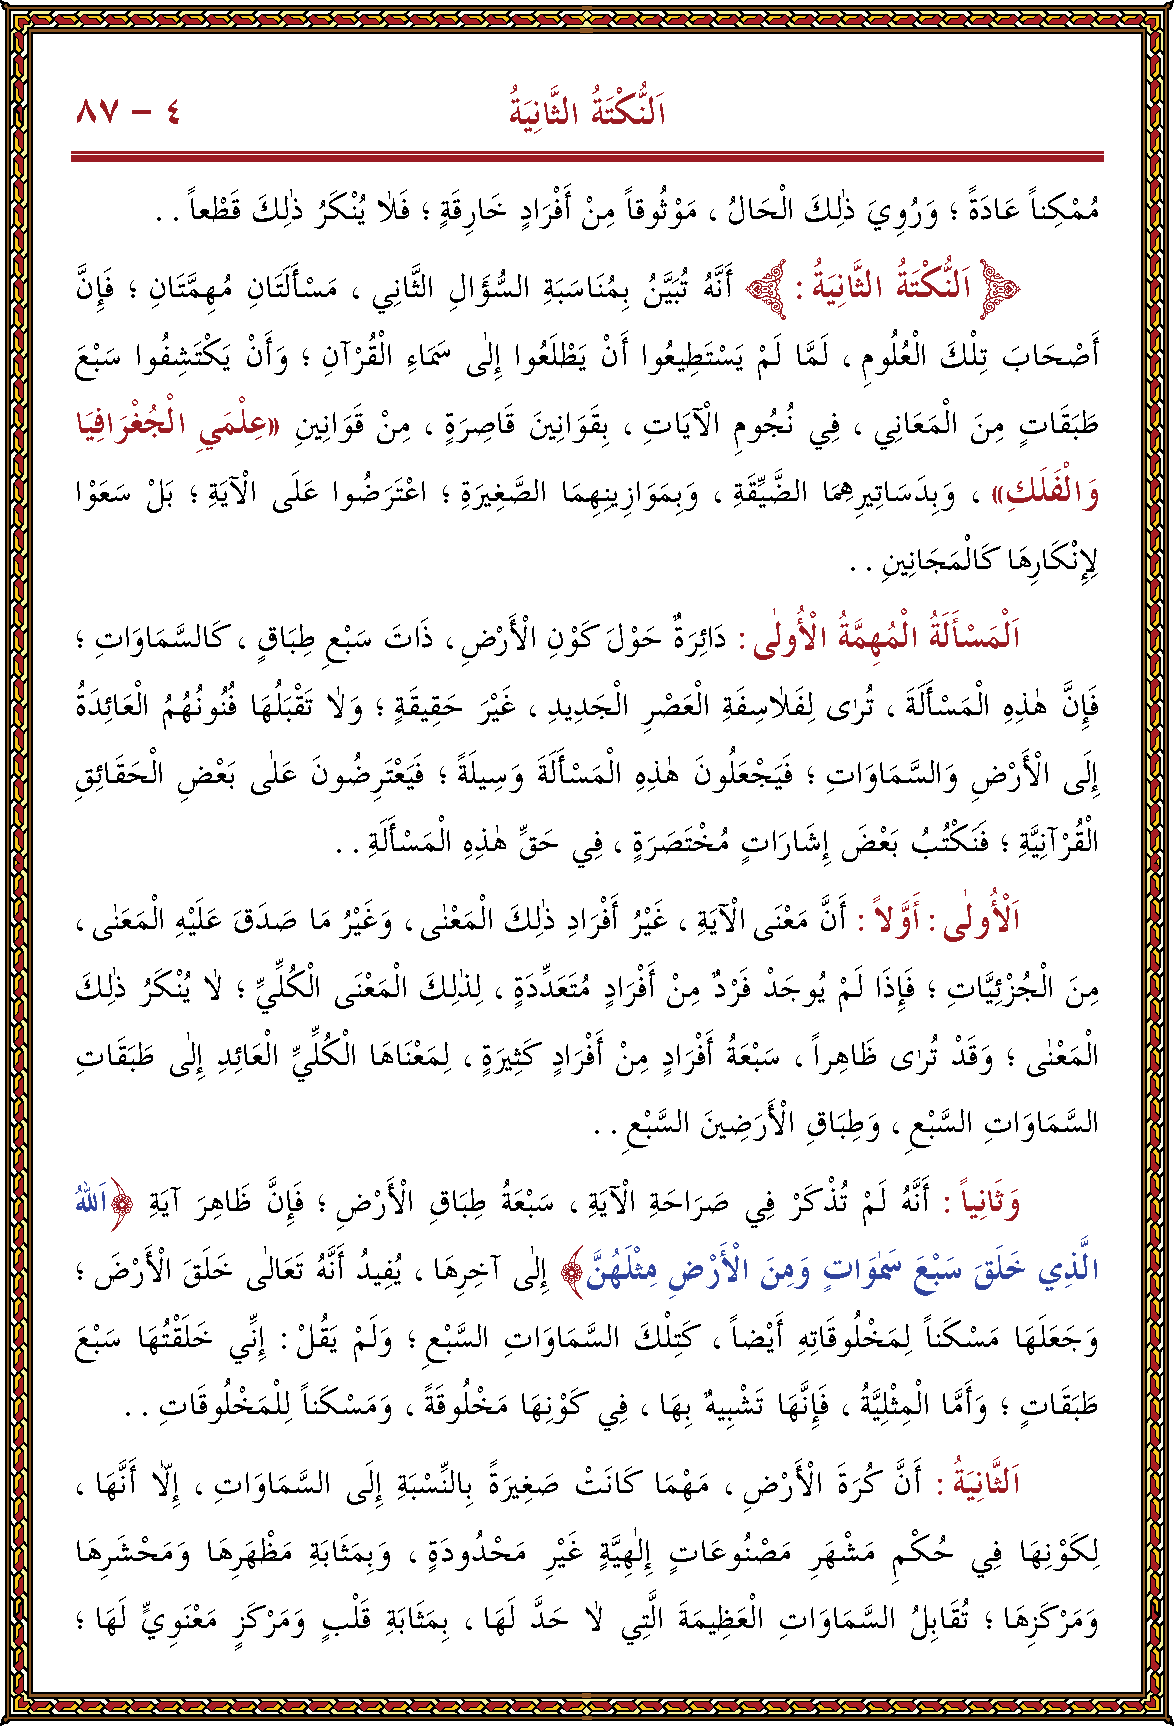 اَلنُّكْتَةُ الثَّانِيَةُ ٤ - ٨٧
مُمْكِناً عَادَةً ؛ وَرُوِيَ ذٰلِكَ الْحَالُ ، مَوْثُوقاً مِنْ أَفْرَادٍ خَارِقَةٍ ؛ فَلَا يُنْكَرُ ذٰلِكَ قَطْعاً . .
﴿ اَلنُّكْتَةُ الثَّانِيَةُ : ﴾ أَنَّهُ تُبَيَّنُ بِمُنَاسَبَةِ السُّؤَالِ الثَّانِي ، مَسْأَلَتَانِ مُهِمَّتَانِ ؛ فَإِنَّ
أَصْحَابَ تِلْكَ الْعُلُومِ ، لَمَّا لَمْ يَسْتَطِيعُوا أَنْ يَطْلَعُوا إِلٰى سَمَاءِ الْقُرْآنِ ؛ وَأَنْ يَكْتَشِفُوا سَبْعَ
طَبَقَاتٍ مِنَ الْمَعَانِي ، فِي نُجُومِ الْآيَاتِ ، بِقَوَانِينَ قَاصِرَةٍ ، مِنْ قَوَانِينِ «عِلْمَيِ الْجُغْرَافِيَا
وَالْفَلَكِ» ، وَبِدَسَاتِيرِهِمَا الضَّيِّقَةِ ، وَبِمَوَازِينِهِمَا الصَّغِيرَةِ ؛ اعْتَرَضُوا عَلَى الْآيَةِ ؛ بَلْ سَعَوْا
لِإِنْكَارِهَا كَالْمَجَانِينِ . .
اَلْمَسْأَلَةُ الْمُهِمَّةُ الْأُولٰى : دَائِرَةٌ حَوْلَ كَوْنِ الْأَرْضِ ، ذَاتَ سَبْعِ طِبَاقٍ ، كَالسَّمَاوَاتِ ؛
فَإِنَّ هٰذِهِ الْمَسْأَلَةَ ، تُرٰى لِفَلَاسِفَةِ الْعَصْرِ الْجَدِيدِ ، غَيْرَ حَقِيقَةٍ ؛ وَلَا تَقْبَلُهَا فُنُونُهُمُ الْعَائِدَةُ
إِلَى الْأَرْضِ وَالسَّمَاوَاتِ ؛ فَيَجْعَلُونَ هٰذِهِ الْمَسْأَلَةَ وَسِيلَةً ؛ فَيَعْتَرِضُونَ عَلٰى بَعْضِ الْحَقَائِقِ
الْقُرْآنِيَّةِ ؛ فَنَكْتُبُ بَعْضَ إِشَارَاتٍ مُخْتَصَرَةٍ ، فِي حَقِّ هٰذِهِ الْمَسْأَلَةِ . .
اَلْأُولٰى : أَوَّلاً : أَنَّ مَعْنَى الْآيَةِ ، غَيْرُ أَفْرَادِ ذٰلِكَ الْمَعْنٰى ، وَغَيْرُ مَا صَدَقَ عَلَيْهِ الْمَعَنٰى ،
مِنَ الْجُزْئِيَّاتِ ؛ فَإِذَا لَمْ يُوجَدْ فَرْدٌ مِنْ أَفْرَادٍ مُتَعَدِّدَةٍ ، لِذٰلِكَ الْمَعْنَى الْكُلِّيِّ ؛ لَا يُنْكَرُ ذٰلِكَ
الْمَعْنٰى ؛ وَقَدْ تُرٰى ظَاهِراً ، سَبْعَةُ أَفْرَادٍ مِنْ أَفْرَادٍ كَثِيرَةٍ ، لِمَعْنَاهَا الْكُلِّيِّ الْعَائِدِ إِلٰى طَبَقَاتِ
السَّمَاوَاتِ السَّبْعِ ، وَطِبَاقِ الْأَرَضِينَ السَّبْعِ . .
وَثَانِياً : أَنَّهُ لَمْ تُذْكَرْ فِي صَرَاحَةِ الْآيَةِ ، سَبْعَةُ طِبَاقِ الْأَرْضِ ؛ فَإِنَّ ظَاهِرَ آيَةِ ﴿اَللّٰهُ
الَّذِي خَلَقَ سَبْعَ سَمٰوَاتٍ وَمِنَ الْأَرْضِ مِثْلَهُنَّ﴾ إِلٰى آخِرِهَا ، يُفِيدُ أَنَّهُ تَعَالٰى خَلَقَ الْأَرْضَ ؛
وَجَعَلَهَا مَسْكَناً لِمَخْلُوقَاتِهِ أَيْضاً ، كَتِلْكَ السَّمَاوَاتِ السَّبْعِ ؛ وَلَمْ يَقُلْ : إِنِّي خَلَقْتُهَا سَبْعَ
طَبَقَاتٍ ؛ وَأَمَّا الْمِثْلِيَّةُ ، فَإِنَّهَا تَشْبِيهٌ بِهَا ، فِي كَوْنِهَا مَخْلُوقَةً ، وَمَسْكَناً لِلْمَخْلُوقَاتِ . .
اَلثَّانِيَةُ : أَنَّ كُرَةَ الْأَرْضِ ، مَهْمَا كَانَتْ صَغِيرَةً بِالنِّسْبَةِ إِلَى السَّمَاوَاتِ ، إِلَّا أَنَّهَا ،
لِكَوْنِهَا فِي حُكْمِ مَشْهَرِ مَصْنُوعَاتٍ إِلٰهِيَّةٍ غَيْرِ مَحْدُودَةٍ ، وَبِمَثَابَةِ مَظْهَرِهَا وَمَحْشَرِهَا
وَمَرْكَزِهَا ؛ تُقَابِلُ السَّمَاوَاتِ الْعَظِيمَةَ الَّتِي لَا حَدَّ لَهَا ، بِمَثَابَةِ قَلْبٍ وَمَرْكَزٍ مَعْنَوِيٍّ لَهَا ؛